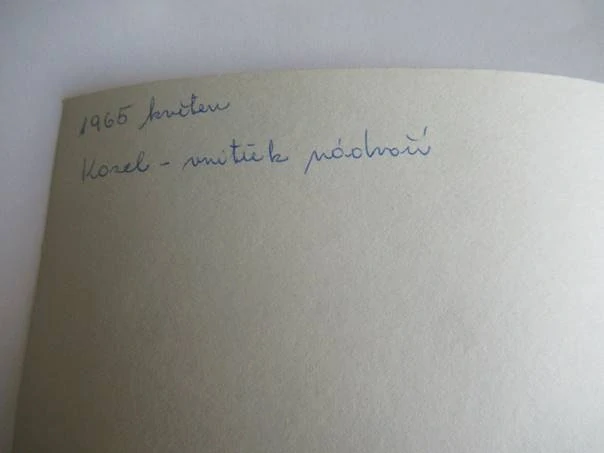 1965 květen
Kozel - vnitřek nádvoří